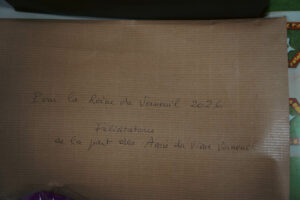 Pour la Reine de Verneuil 2026
Félicitations
de la part des Amis du Vieux Verneuil